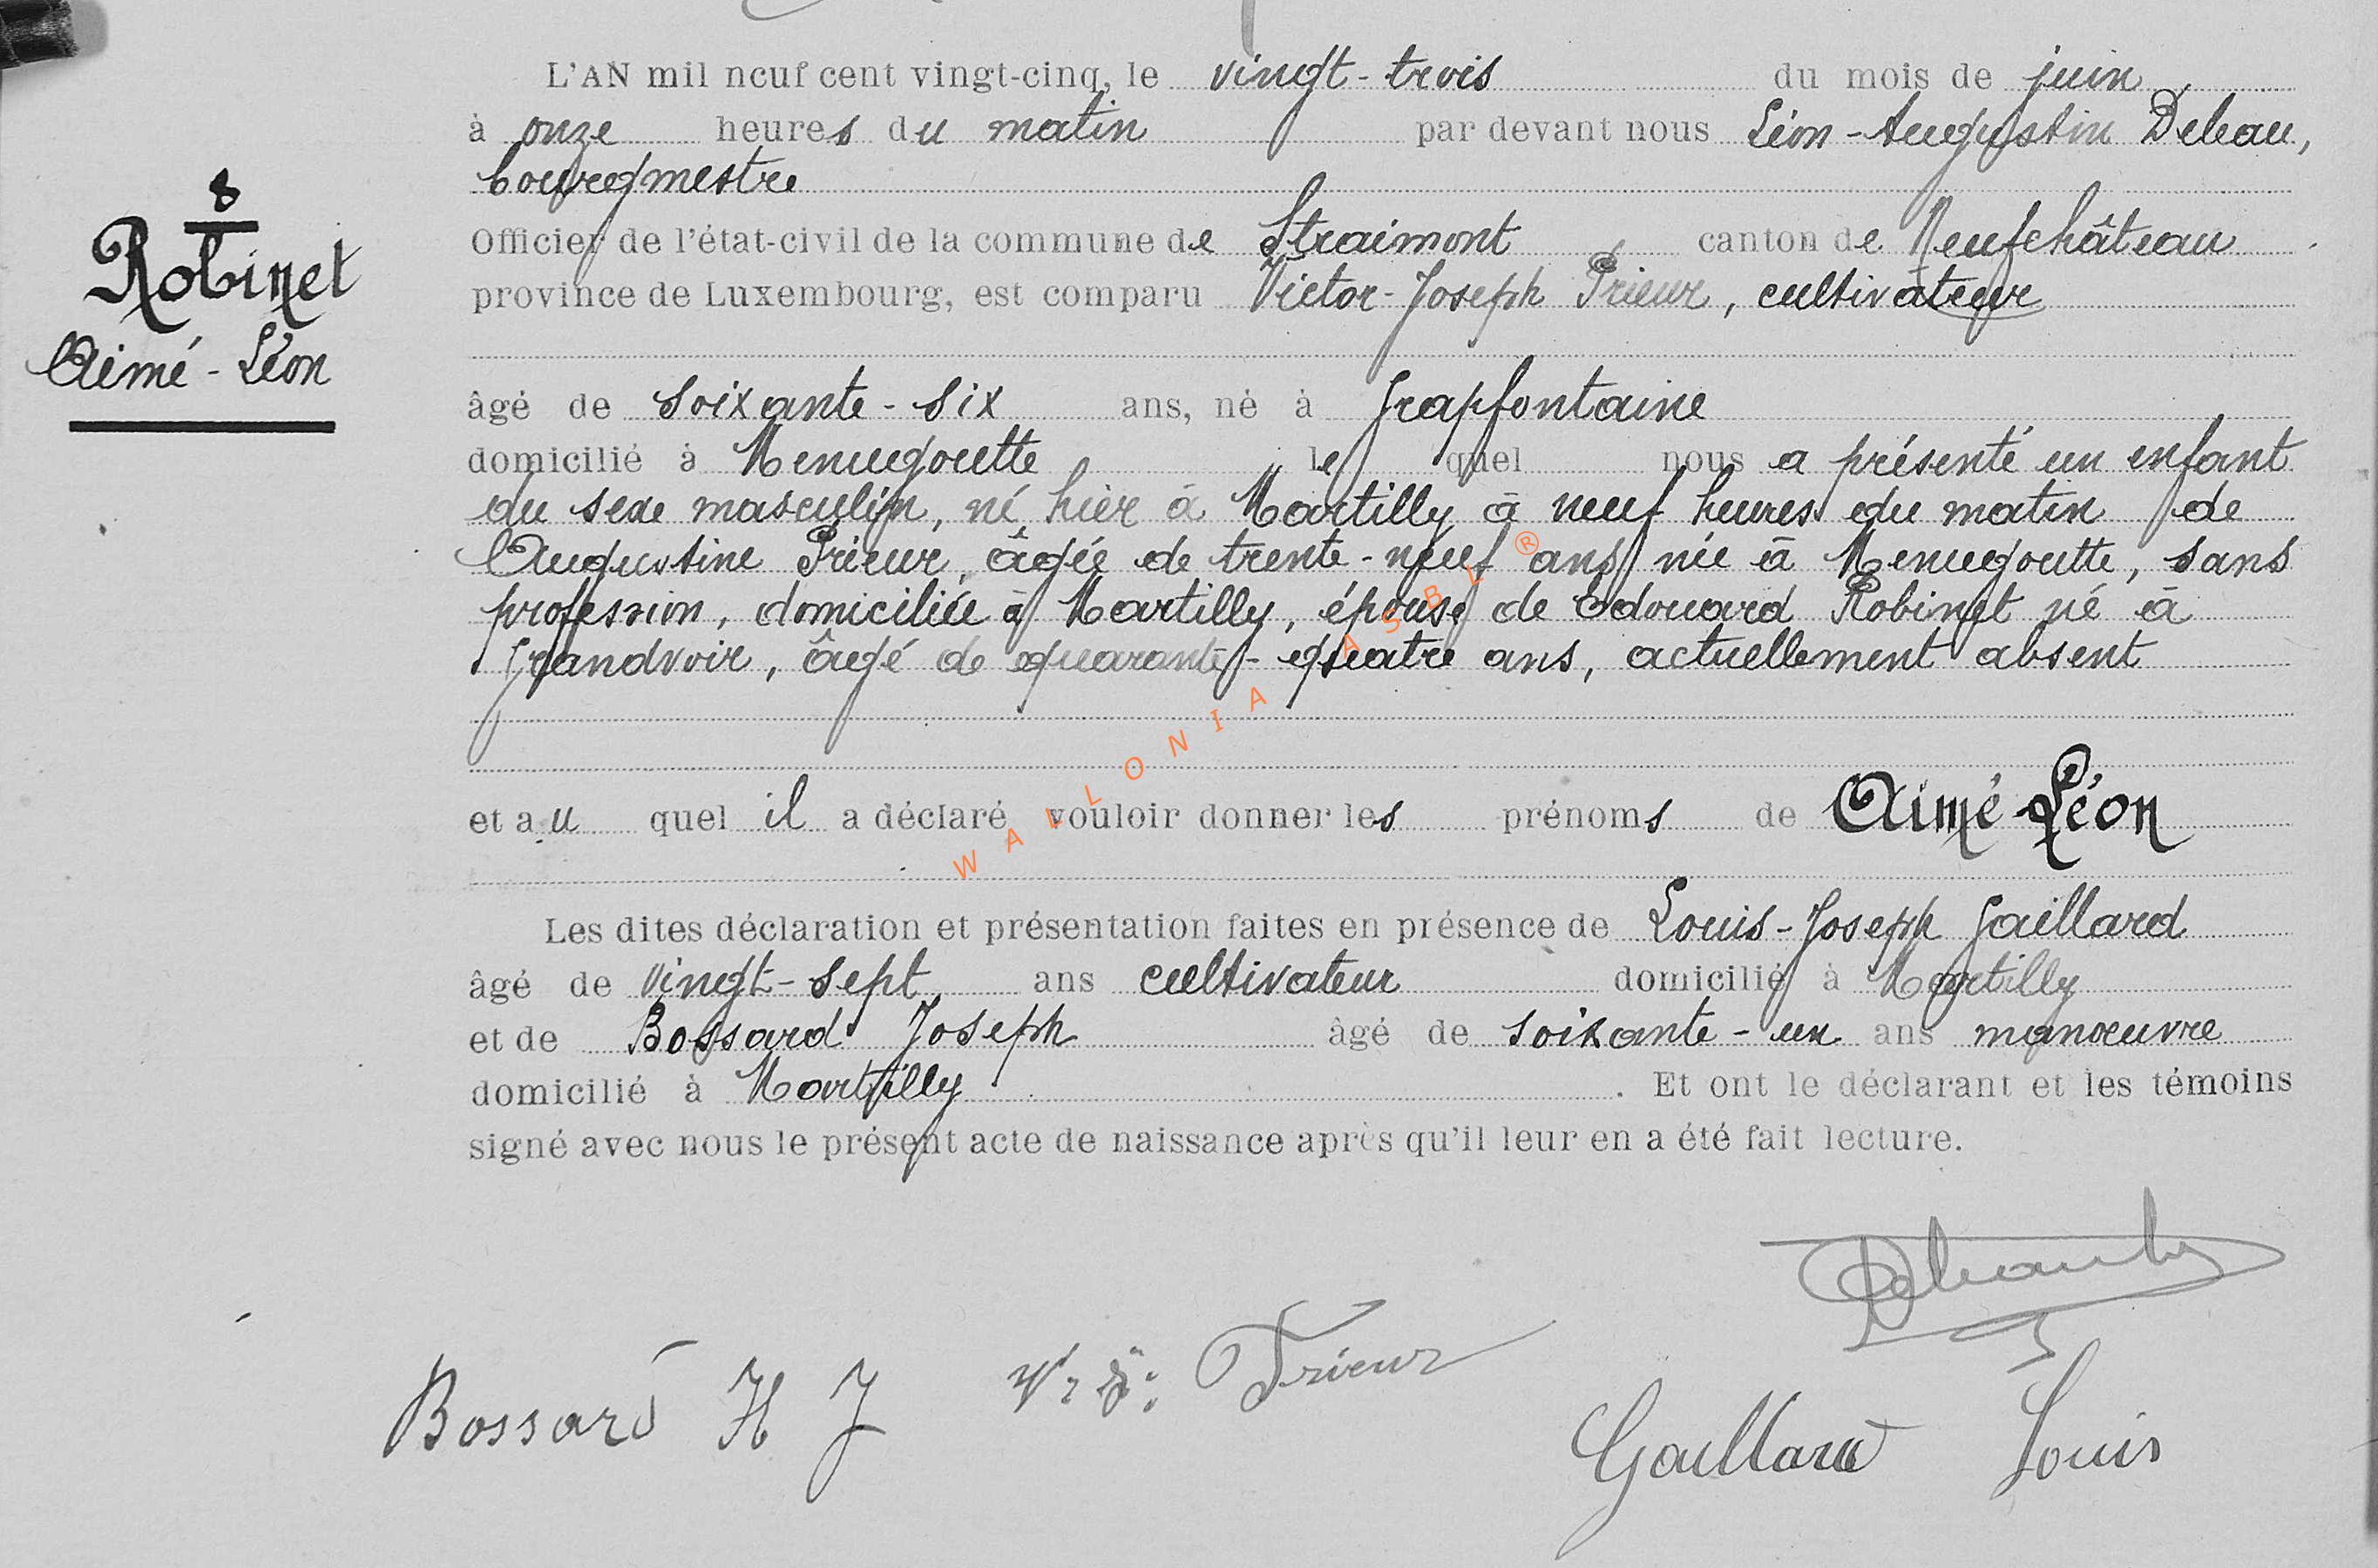 L'AN mil neuf cent vingt-cinq, le vingt-trois du mois de juin
à onze heures du matin par devant nous Léon-Augustin Deleau,
bourgmestre
8
Robinet
Aimé-Léon
Officier de l'état-civil de la commune de Straimont canton de Neufchâteau
province de Luxembourg, est comparu Victor-Joseph Prieur, cultivateur
âgé de soixante-six ans, né à Grapfontaine
domicilié à Menugoutte lequel nous a présenté un enfant
du sexe masculin, né hier à Martilly à neuf heures du matin de
Augustine Prieur, âgée de trente-neuf ans née à Menugoutte, sans
profession, domiciliée à Martilly, épouse de Edouard Robinet né à
Grandvoir, âgé de quarante-quatre ans, actuellement absent
et au quel il a déclaré vouloir donner les prénoms de Aimé-Léon
WALLONIA ASBL ®
Les dites déclaration et présentation faites en présence de Louis-Joseph Gaillard
âgé de vingt-sept ans cultivateur domicilié à Martilly
et de Bossard Joseph âgé de soixante-un ans manœuvre
domicilié à Martilly. Et ont le déclarant et les témoins
signé avec nous le présent acte de naissance après qu'il leur en a été fait lecture.
Bossard H J
Prieur
Gaillard Louis